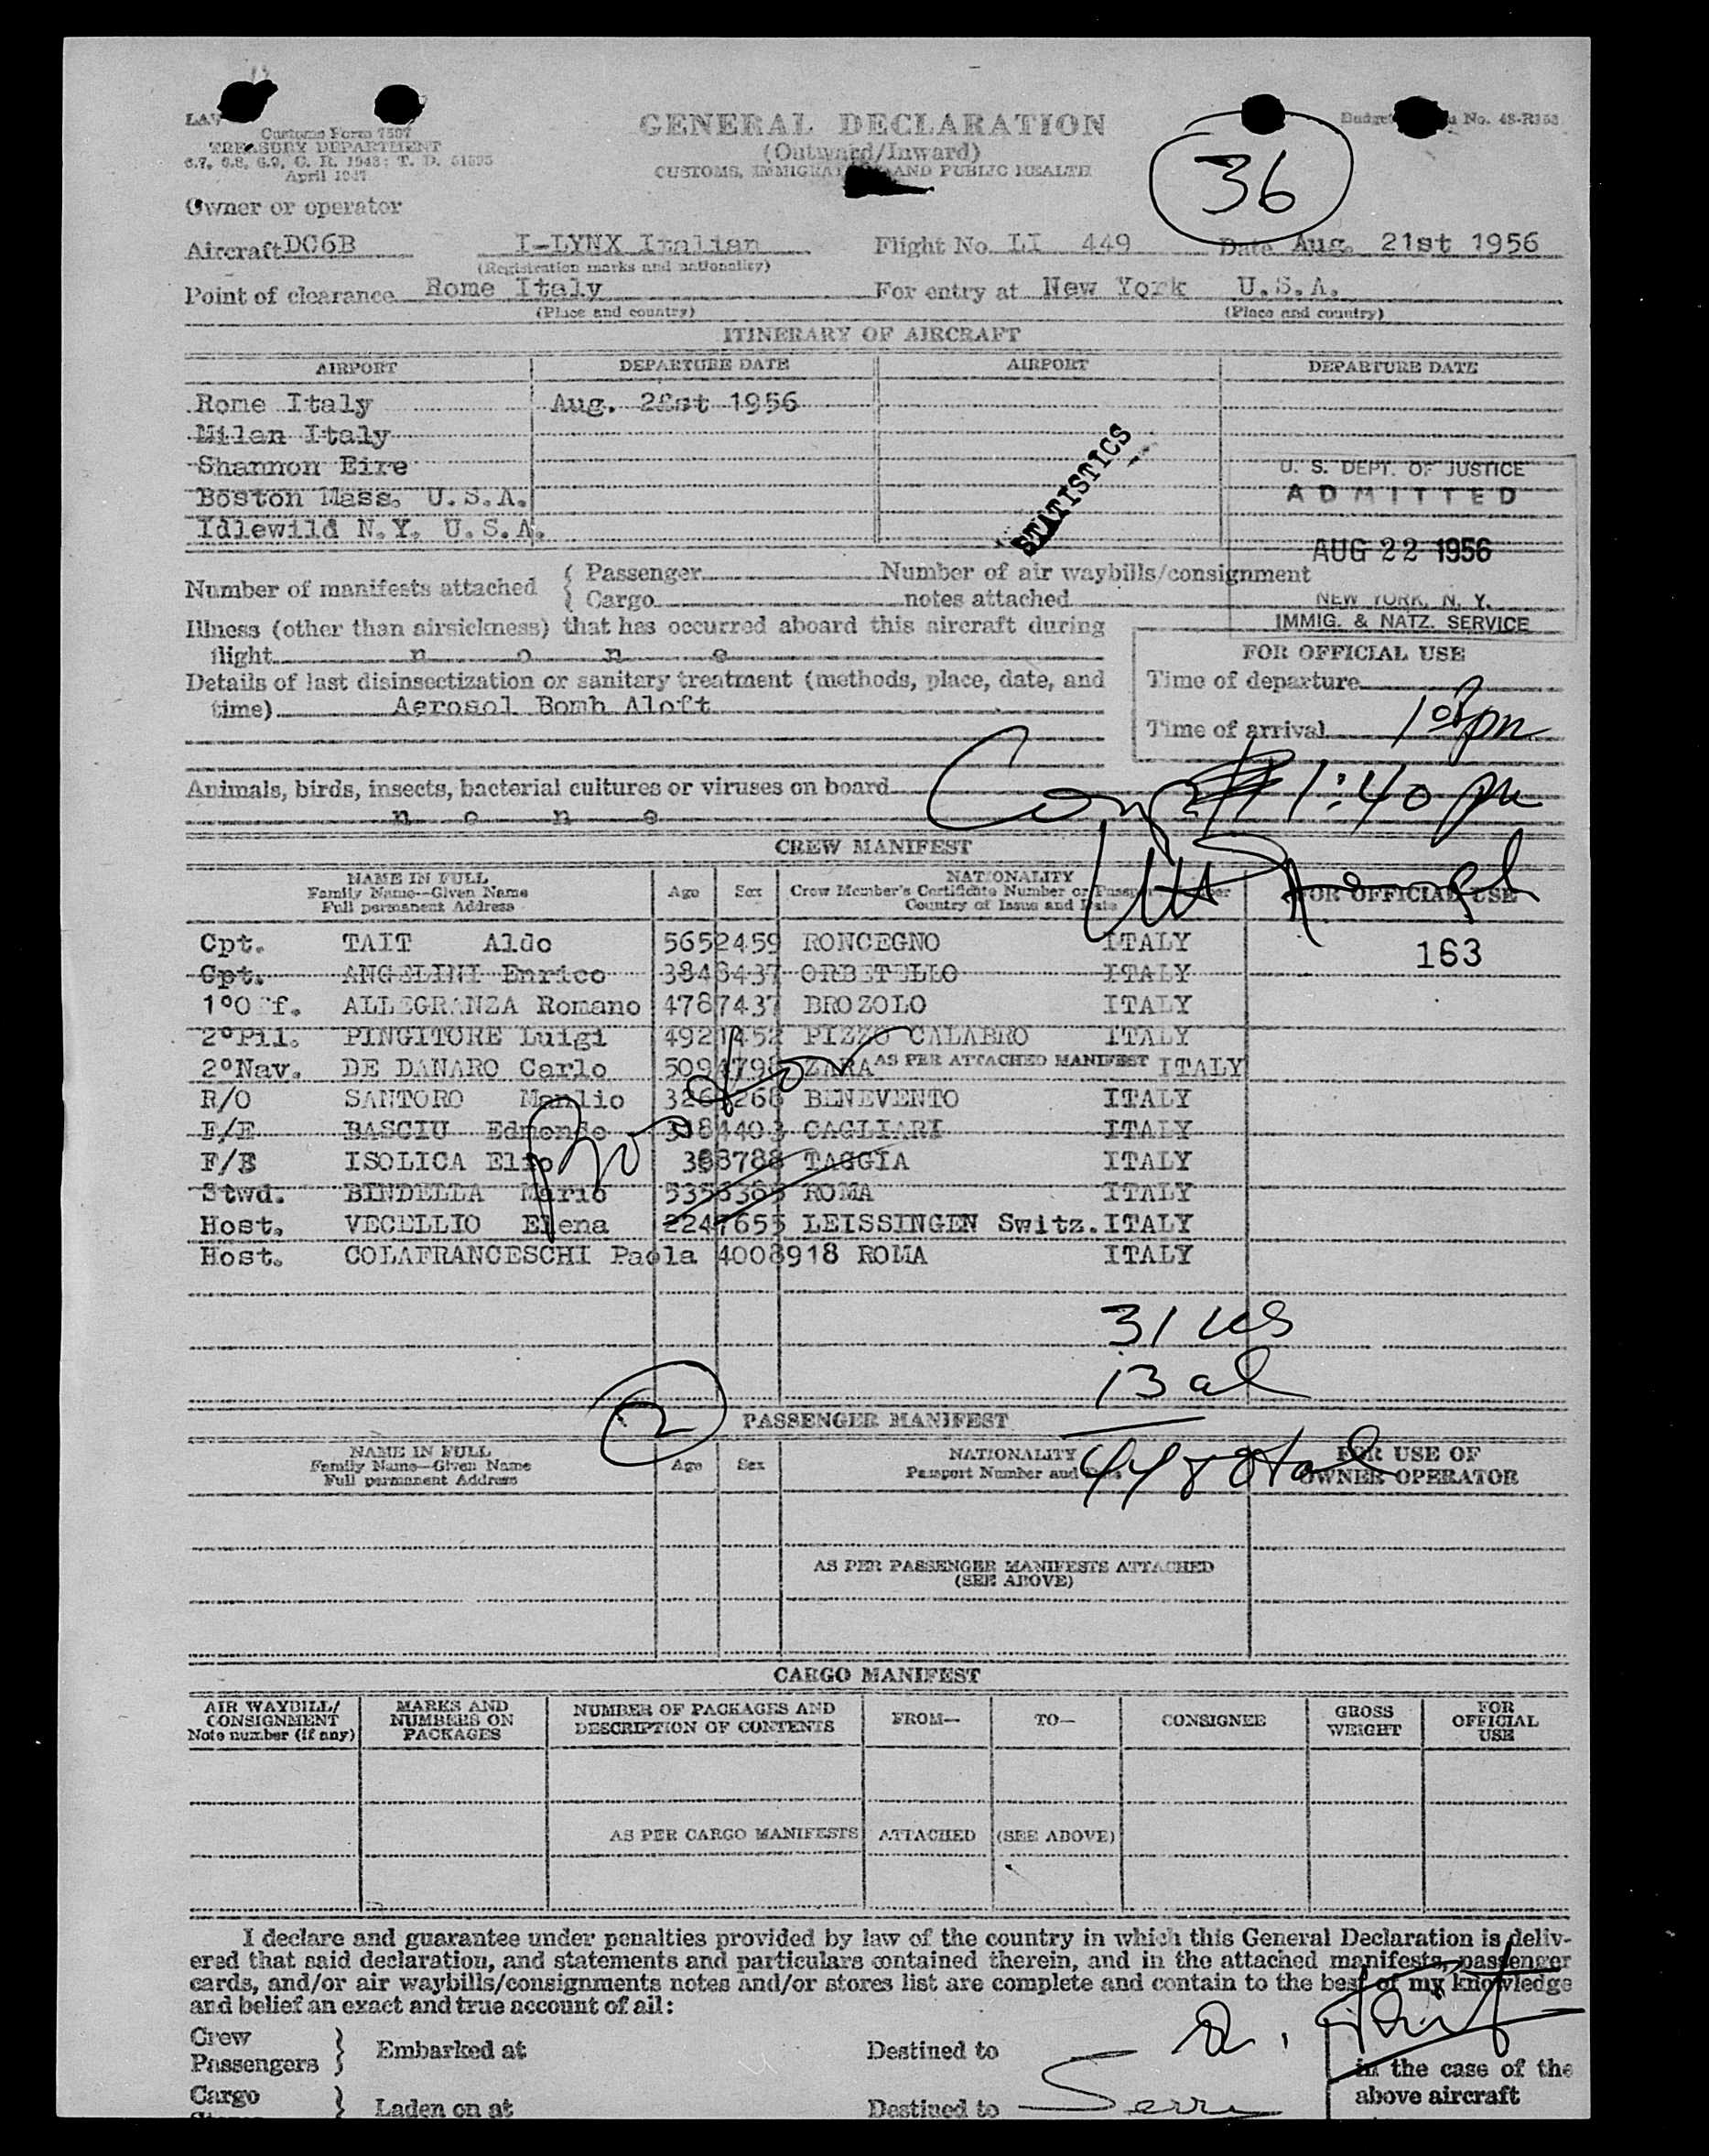 GENERAL DECLARATION
(Outward/Inward)
CUSTOMS, AND PUBLIC HEALTH
Customs Form 7507
TREASURY DEPARTMENT
April 1947
No. 48-R153
36
Owner or operator
Aircraft DC6B I-LYNX Italian Flight No. LI 449 Date Aug. 21st 1956
(Registration marks and nationality)
Point of clearance Rome Italy For entry at New York U.S.A.
(Place and country) (Place and country)
ITINERARY OF AIRCRAFT
AIRPORT DEPARTURE DATE AIRPORT DEPARTURE DATE
Rome Italy Aug. 21st 1956
Milan Italy
Shannon Eire
Boston Mass. U.S.A.
Idlewild N.Y. U.S.A.
STATISTICS
U. S. DEPT. OF JUSTICE
ADMITTED
AUG 22 1956
NEW YORK, N. Y.
IMMIG. & NATZ. SERVICE
Number of manifests attached { Passenger Number of air waybills/consignment
{ Cargo notes attached
Illness (other than airsickness) that has occurred aboard this aircraft during
flight n o n e
Details of last disinsectization or sanitary treatment (methods, place, date, and
time) Aerosol Bomb Aloft
FOR OFFICIAL USE
Time of departure
Time of arrival
Animals, birds, insects, bacterial cultures or viruses on board
n o n e
1:40 pm
CREW MANIFEST
NAME IN FULL
Family Name—Given Name
Full permanent Address
Age Sex
NATIONALITY
Crew Member's Certificate Number or
Country of Issue and Date
FOR OFFICIAL USE
Cpt. TAIT Aldo 5652459 RONCEGNO ITALY 163
Cpt. ANGELINI Enrico 3848437 ORBETELLO ITALY
1°Off. ALLEGRANZA Romano 4787437 BROZOLO ITALY
2°Pil. PINGITORE Luigi PIZZO CALABRO ITALY
2°Nav. DE DANARO Carlo ZARA AS PER ATTACHED MANIFEST ITALY
R/O SANTORO Manlio BENEVENTO ITALY
F/E BASCIU Edmondo CAGLIARI ITALY
F/E ISOLICA Elio TAGGIA ITALY
Stwd. BINDELLA Mario ROMA ITALY
Host. VECELLIO Elena 2247655 LEISSINGEN Switz. ITALY
Host. COLAFRANCESCHI Paola 4008918 ROMA ITALY
Boston
31 us
13 al
44 total
2
PASSENGER MANIFEST
NAME IN FULL
Family Name—Given Name
Full permanent Address
Age Sex
NATIONALITY
Passport Number and
FOR USE OF
OWNER OPERATOR
AS PER PASSENGER MANIFESTS ATTACHED
(SEE ABOVE)
CARGO MANIFEST
AIR WAYBILL/
CONSIGNMENT
Note number (if any)
MARKS AND
NUMBERS ON
PACKAGES
NUMBER OF PACKAGES AND
DESCRIPTION OF CONTENTS
FROM—
TO—
CONSIGNEE
GROSS
WEIGHT
FOR
OFFICIAL
USE
AS PER CARGO MANIFESTS ATTACHED (SEE ABOVE)
I declare and guarantee under penalties provided by law of the country in which this General Declaration is deliv-
ered that said declaration, and statements and particulars contained therein, and in the attached manifests, passenger
cards, and/or air waybills/consignments notes and/or stores list are complete and contain to the best of my knowledge
and belief an exact and true account of all:
Crew
Passengers } Embarked at Destined to
in the case of the
above aircraft
Cargo } Laden on at Destined to